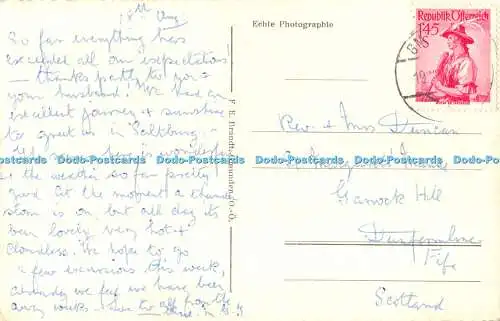 18th Aug
So far everything has
exceeded all our expectations!
— thanks partly to you +
your husband! We had an
excellent journey + sunshine
to greet us in Salzburg.
is wonderful
+ the weather so far pretty
good. At the moment a thunder
storm is on, but all day it's
been lovely very hot +
cloudless. We hope to go
a few excursions this week,
already we feel we have been
away weeks. Love to all from
Echte Photographie
F. E. Brandt, Gmunden, O.-Ö.
Republik Österreich
1.45
S
Rev. + Mrs Duncan
Dodo-Postcards Dodo-Postcards Dodo-Postcards Dodo-Postcards Dodo-Postcards Dodo-Postcards
Garrock Hill
Dodo-Postcards Dodo-Postcards Dodo-Postcards Dodo-Postcards Dodo-Postcards Dodo-Postcards
Dunfermline
Fife
Scotland